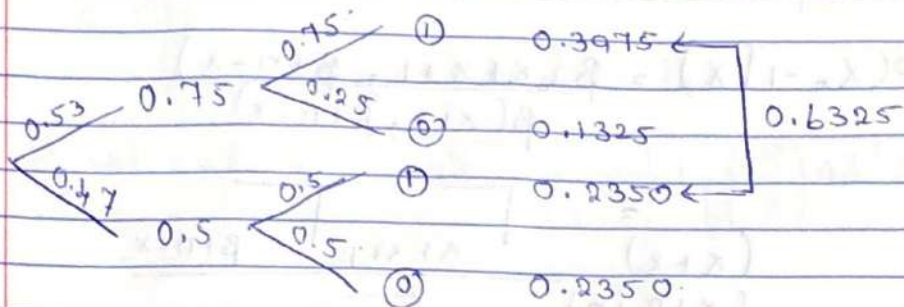 0.75 ① 0.3975
0.53 0.75 0.25 ⓪ 0.1325 0.6325
0.47 0.5 0.5 ① 0.2350
0.5 ⓪ 0.2350